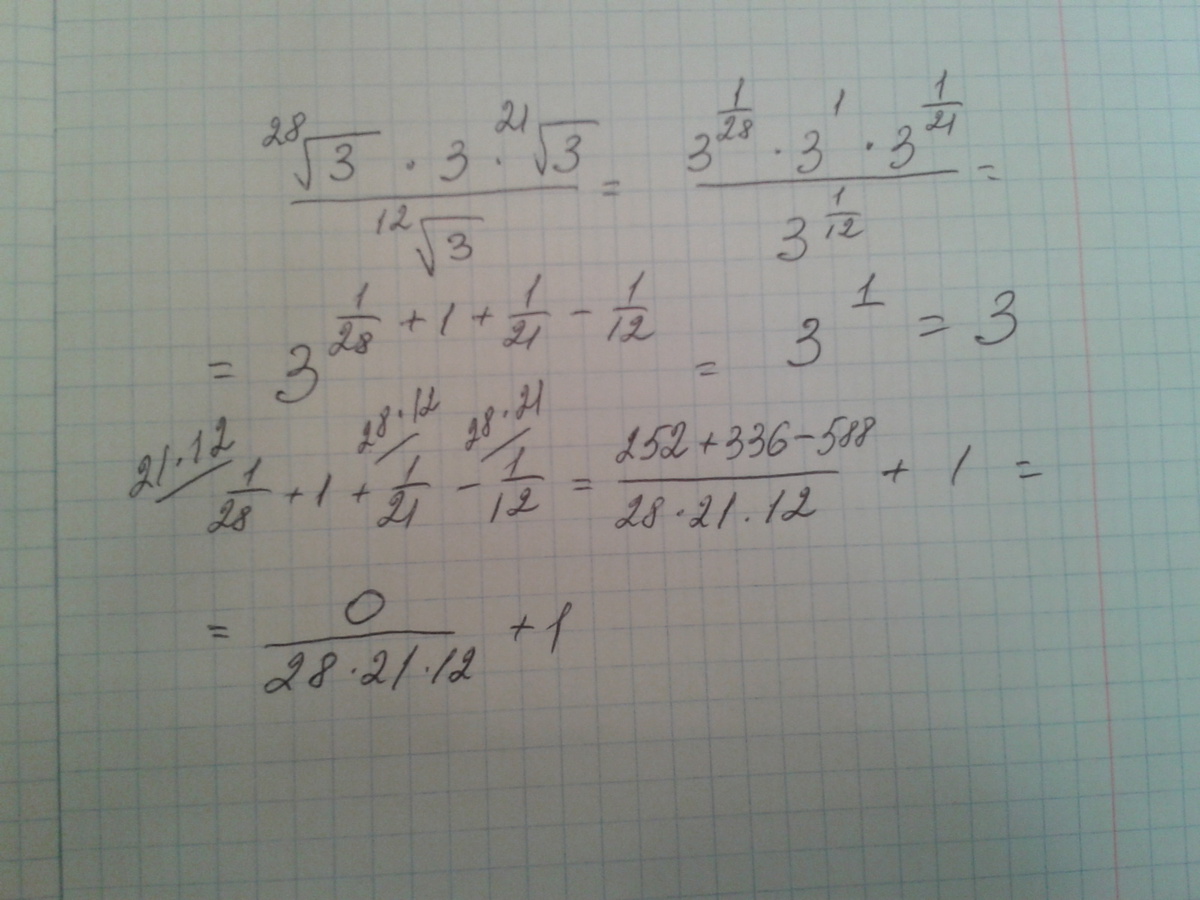 ²⁸√3 · 3 · ²¹√3 / ¹²√3 = 3^(1/28) · 3^1 · 3^(1/21) / 3^(1/12) =
= 3^(1/28 + 1 + 1/21 − 1/12) = 3^1 = 3
21·12/ 28·12/ 28·21/
1/28 + 1 + 1/21 − 1/12 = (252 + 336 − 588) / (28 · 21 · 12) + 1 =
= 0 / (28 · 21 · 12) + 1